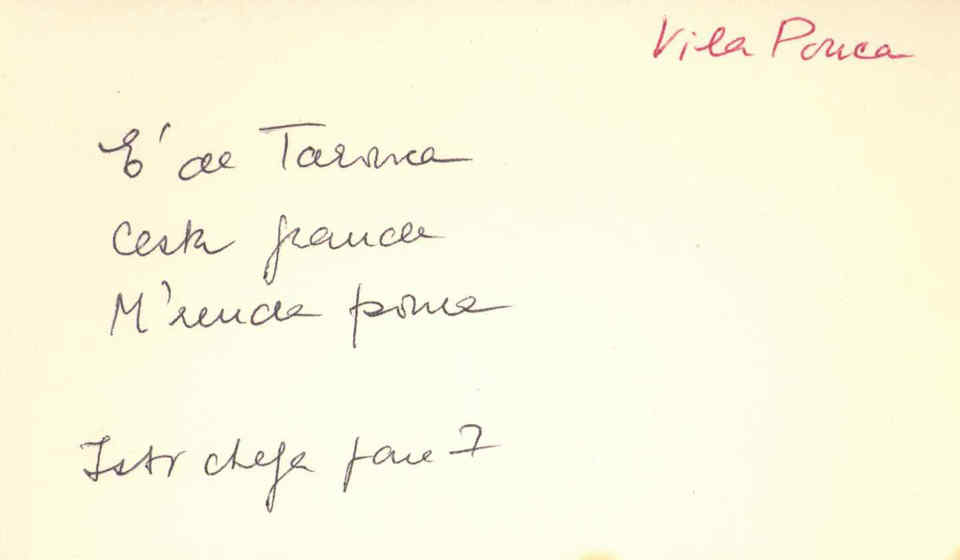 Vila Pouca
É de Tarouca
Cesta grande
M'renda pouca
Isto chega para 7